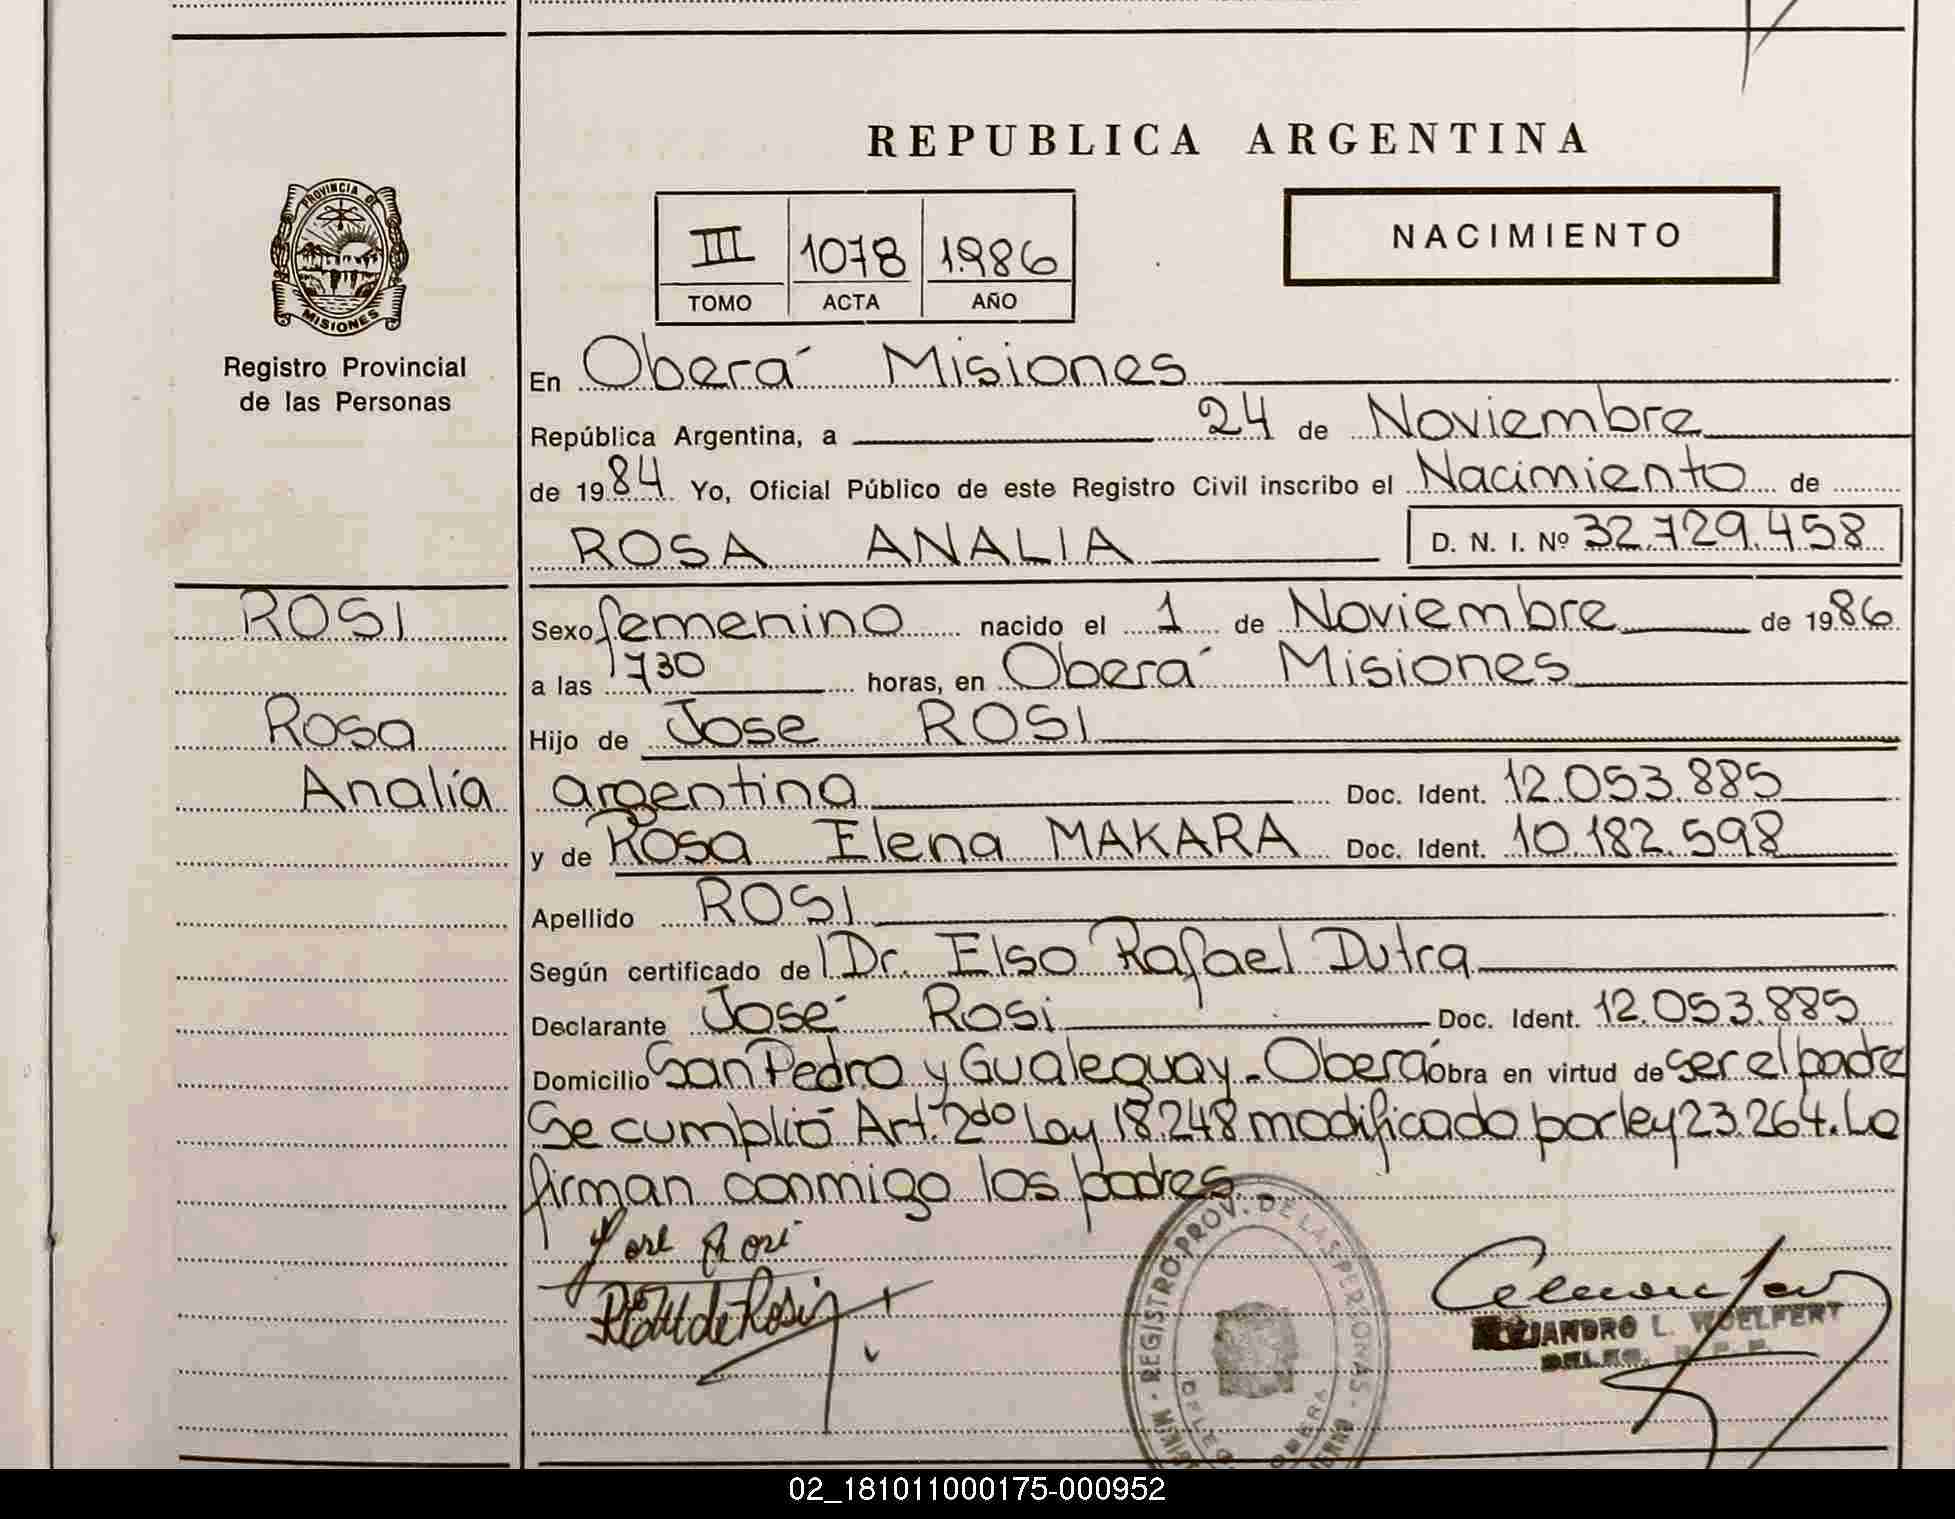 REPUBLICA ARGENTINA
PROVINCIA DE
MISIONES
Registro Provincial
de las Personas
III 1078 1986
TOMO ACTA AÑO
NACIMIENTO
En Oberá Misiones
República Argentina, a 24 de Noviembre
de 1984 Yo, Oficial Público de este Registro Civil inscribo el Nacimiento de
ROSA ANALIA D. N. I. Nº 32.729.458
ROSI
Rosa
Analía
Sexo femenino nacido el 1 de Noviembre de 1986
a las 730 horas, en Oberá Misiones
Hijo de Jose ROSI
argentina Doc. Ident. 12.053.885
y de Rosa Elena MAKARA Doc. Ident. 10.182.598
Apellido ROSI
Según certificado de Dr. Elso Rafael Dutra
Declarante José Rosi Doc. Ident. 12.053.885
Domicilio San Pedro y Gualeguay - Oberá obra en virtud de ser el padre
Se cumplió Art. 2do Ley 18.248 modificado por ley 23.264. Lo
firman conmigo los padres
Jose Rosi
de Rosi
REGISTRO PROV. DE LAS PERSONAS
OBERA
ALEJANDRO L. WOELFERT
DELEG. R. P. P.
02_181011000175-000952